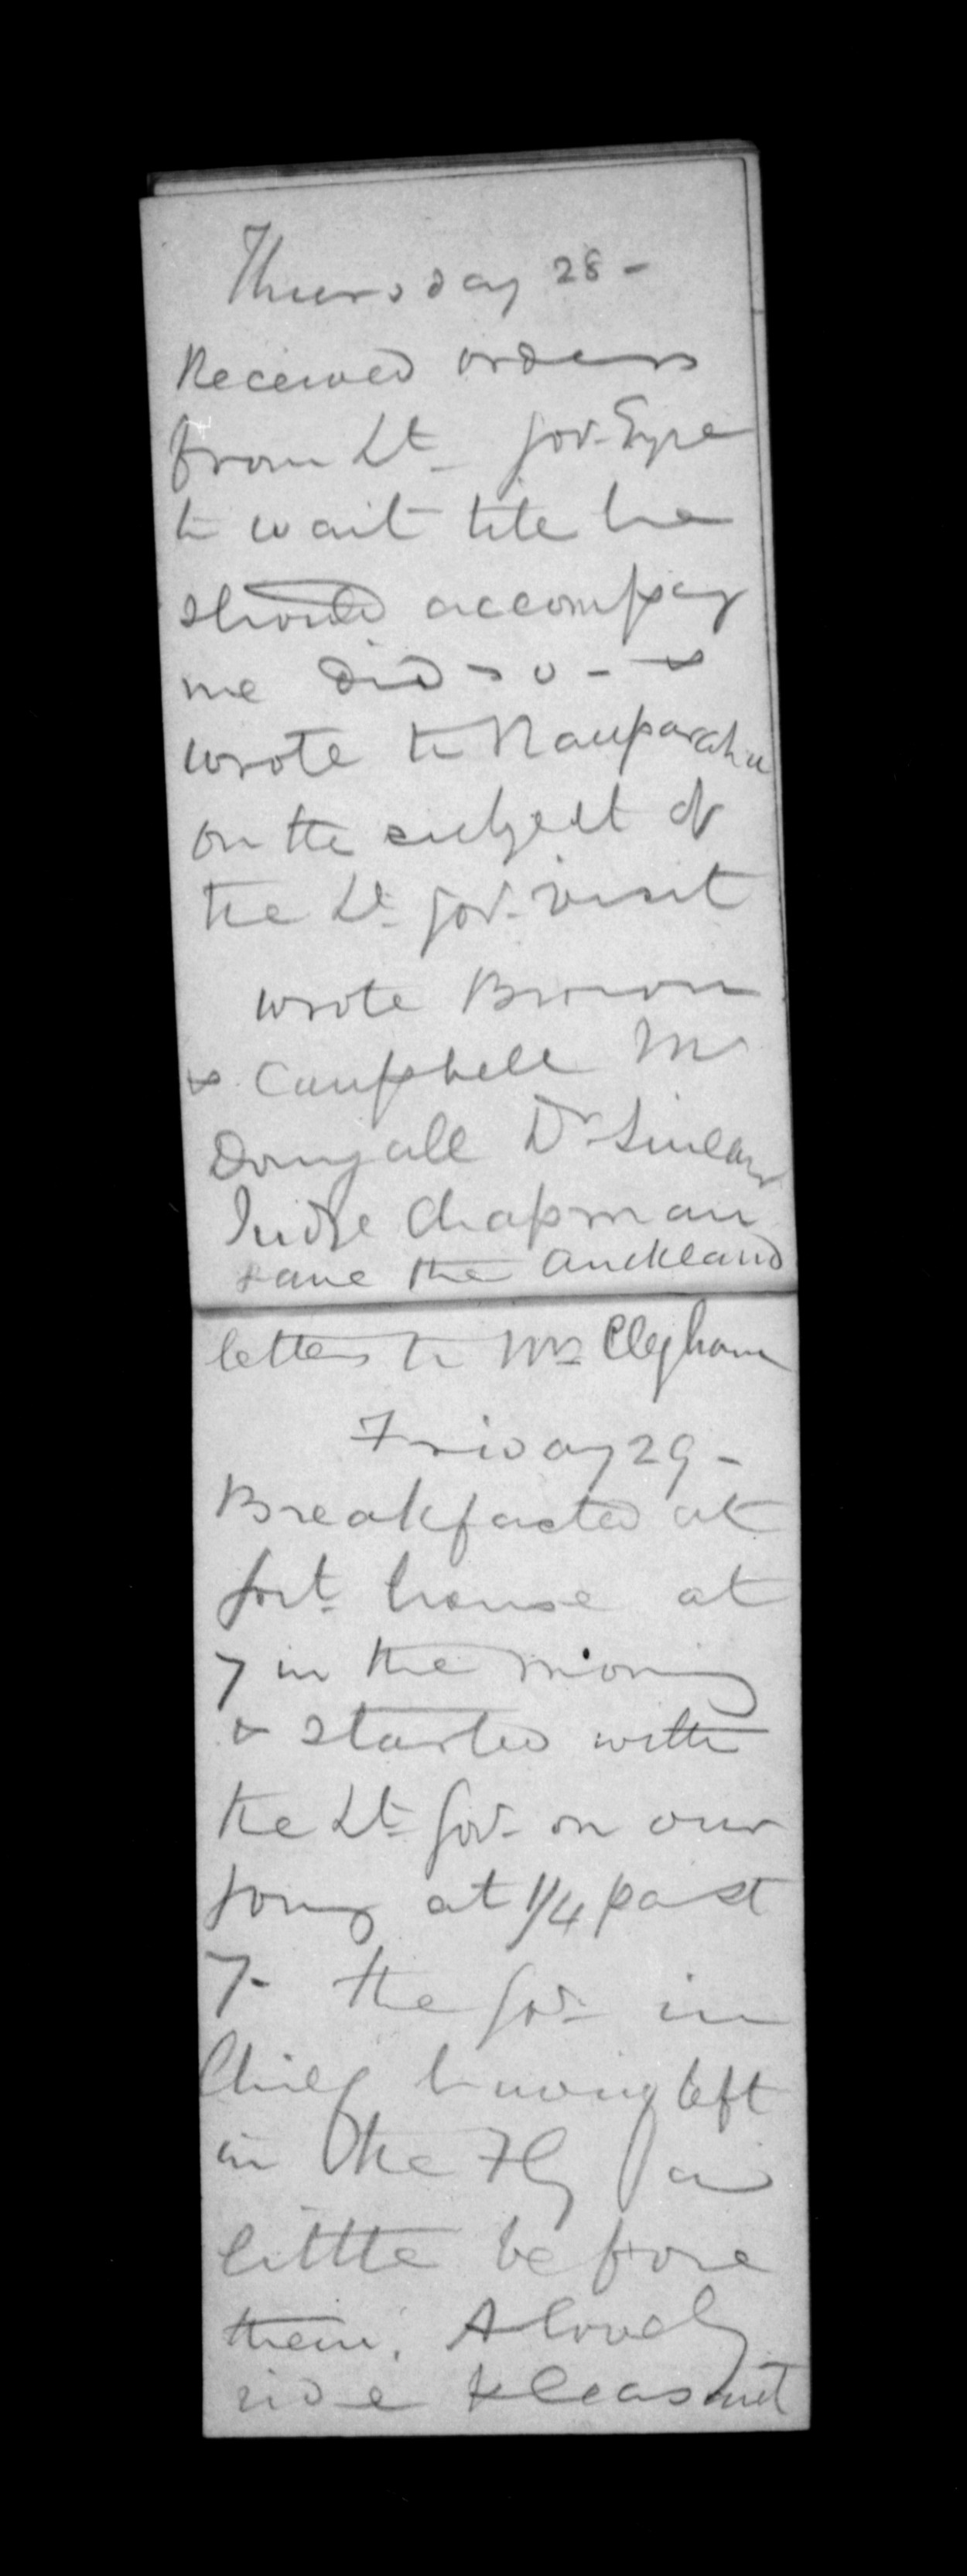 Thursday 28 -
Received orders
from Lt. Gov. Eyre
to wait till he
should accompany
me did so - &
wrote to Rauparaha
on the subject of
the Lt. Gov. visit
wrote Brown
& Campbell Mc
Dougall Dr Sinclair
Judge Chapman
& gave the Auckland
letters to Mr Cleghorn
Friday 29 -
Breakfasted at
Govt. house at
7 in the morning
& started with
the Lt. Gov. on our
journey at 1/4 past
7 - the Gov. in
Chief having left
in the Fly a
little before
them. A lovely
ride & pleasant